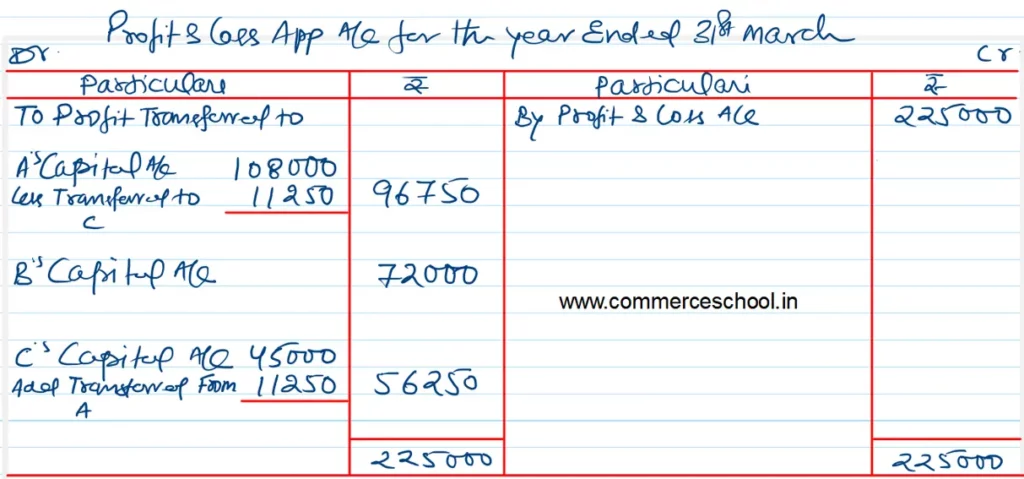 Profit & Loss App A/c for the year Ended 31st March
Dr. Cr
Particulars ₹ Particulars ₹
To Profit Transferred to By Profit & Loss A/c 225000
A's Capital A/c 108000
Less Transferred to 11250 96750
C
B's Capital A/c 72000
www.commerceschool.in
C's Capital A/c 45000
Add Transferred From 11250 56250
A
225000 225000